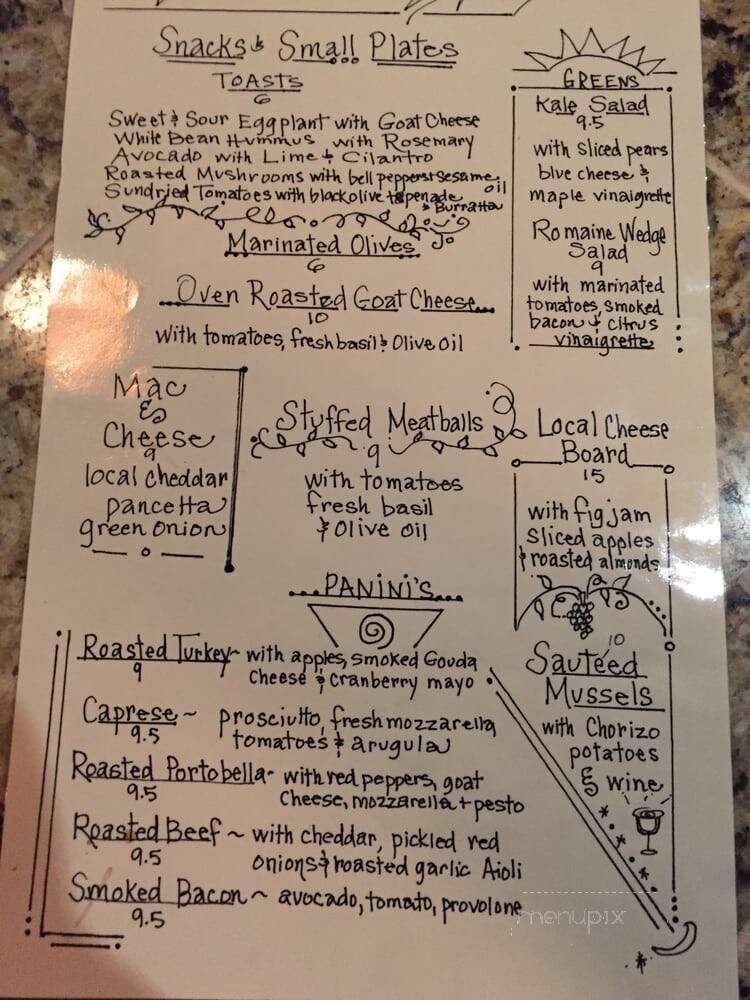 Snacks & Small Plates
TOASTS
6
Sweet & Sour Eggplant with Goat Cheese
White Bean Hummus with Rosemary
Avocado with Lime & Cilantro
Roasted Mushrooms with bell peppers & sesame oil
Sundried Tomatoes with black olive tapenade
& Burratta
Marinated Olives
6
Oven Roasted Goat Cheese
10
with tomatoes, fresh basil & Olive oil
GREENS
Kale Salad
9.5
with sliced pears
blue cheese &
maple vinaigrette
Romaine Wedge
Salad
9
with marinated
tomatoes, smoked
bacon & citrus
vinaigrette
Mac
&
Cheese
9
local cheddar
pancetta
green onion
Stuffed Meatballs
9
with tomatoes
fresh basil
& Olive oil
Local Cheese
Board
15
with fig jam
sliced apples
& roasted almonds
PANINI'S
Roasted Turkey ~ with apples, smoked Gouda
9
cheese & cranberry mayo
Caprese ~ prosciutto, fresh mozzarella
9.5
tomatoes & arugula
Roasted Portobella - with red peppers, goat
9.5
cheese, mozzarella + pesto
Roasted Beef ~ with cheddar, pickled red
9.5
onions & roasted garlic Aioli
Smoked Bacon ~ avocado, tomato, provolone
9.5
10
Sautéed
Mussels
with Chorizo
potatoes
& wine
menupix